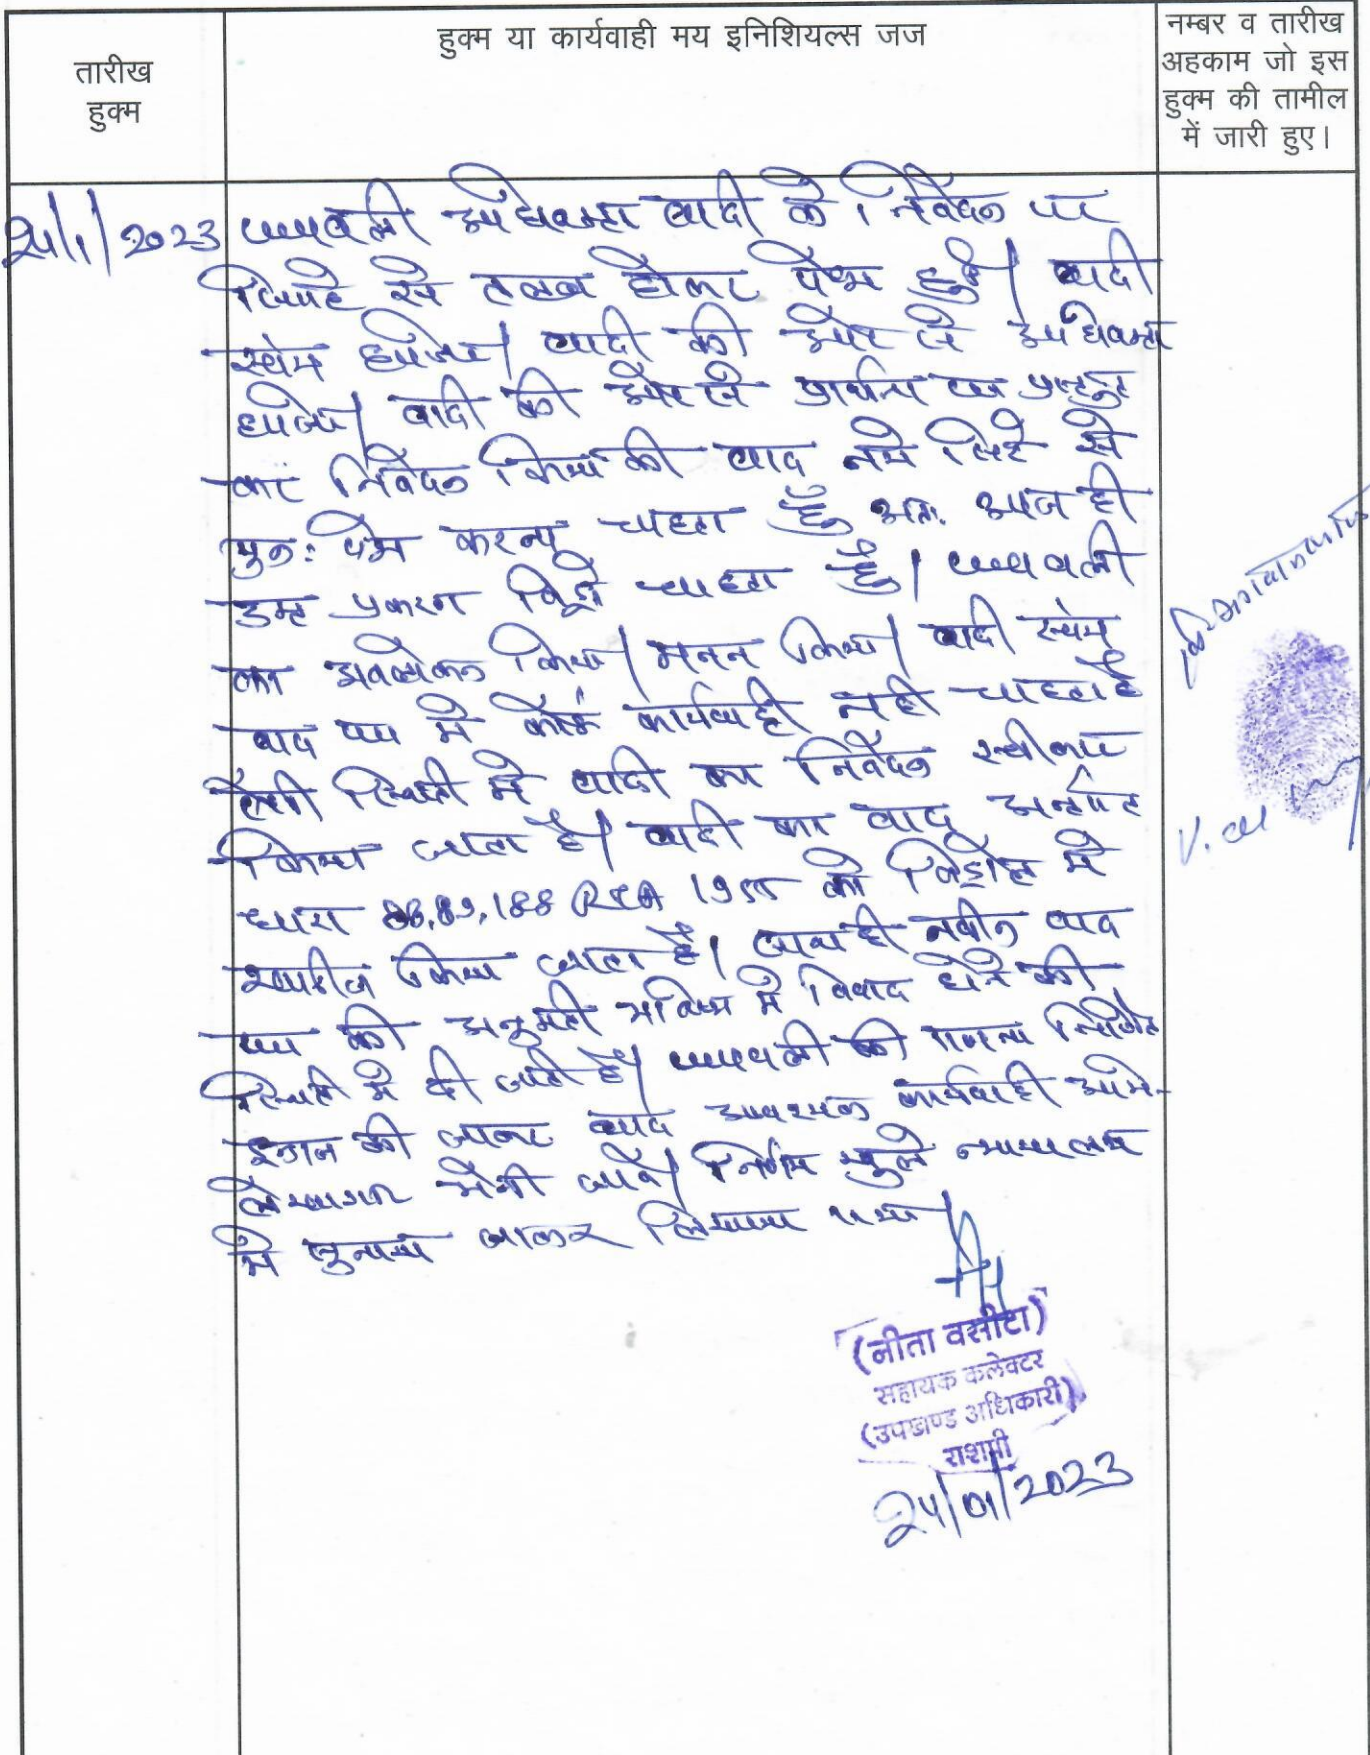 तारीख
हुक्म
हुक्म या कार्यवाही मय इनिशियल्स जज
नम्बर व तारीख
अहकाम जो इस
हुक्म की तामील
में जारी हुए।
24/1/2023 पत्रावली अधिवक्ता वादी के निवेदन पर
से तलब होकर पेश हुई। वादी
स्वंय हाजिर। वादी की और से अधिवक्ता
हाजिर। वादी की और से प्रार्थना पत्र प्रस्तुत
कर निवेदन किया की वाद नये सिरे से
पुनः पेश करना चाहता हूँ अतः आज ही
उक्त प्रकरण विड्रो चाहता हूँ। पत्रावली
का अवलोकन किया। मनन किया। वादी स्वंय
वाद पत्र मे कोई कार्यवाही नही चाहता है
ऐसी स्थिती मे वादी का निवेदन स्वीकार
किया जाता है। वादी का वाद अन्तर्गत
धारा 88,89,188 RTA 1955 को विड्रोल मे
खारीज किया जाता है। साथ ही नवीन वाद
पत्र की अनुमती भविष्य मे विवाद होने की
स्थिती मे दी जाती है। पत्रावली की गणना निर्णित
इन्द्राज की जाकर बाद आवश्यक कार्यवाही अभि-
लेखागार भेजी जावे। निर्णय खुले न्यायालय
मे सुनाया जाकर लिखाया गया।
(नीता वसीटा)
सहायक कलेक्टर
(उपखण्ड अधिकारी)
राशमी
24/01/2023